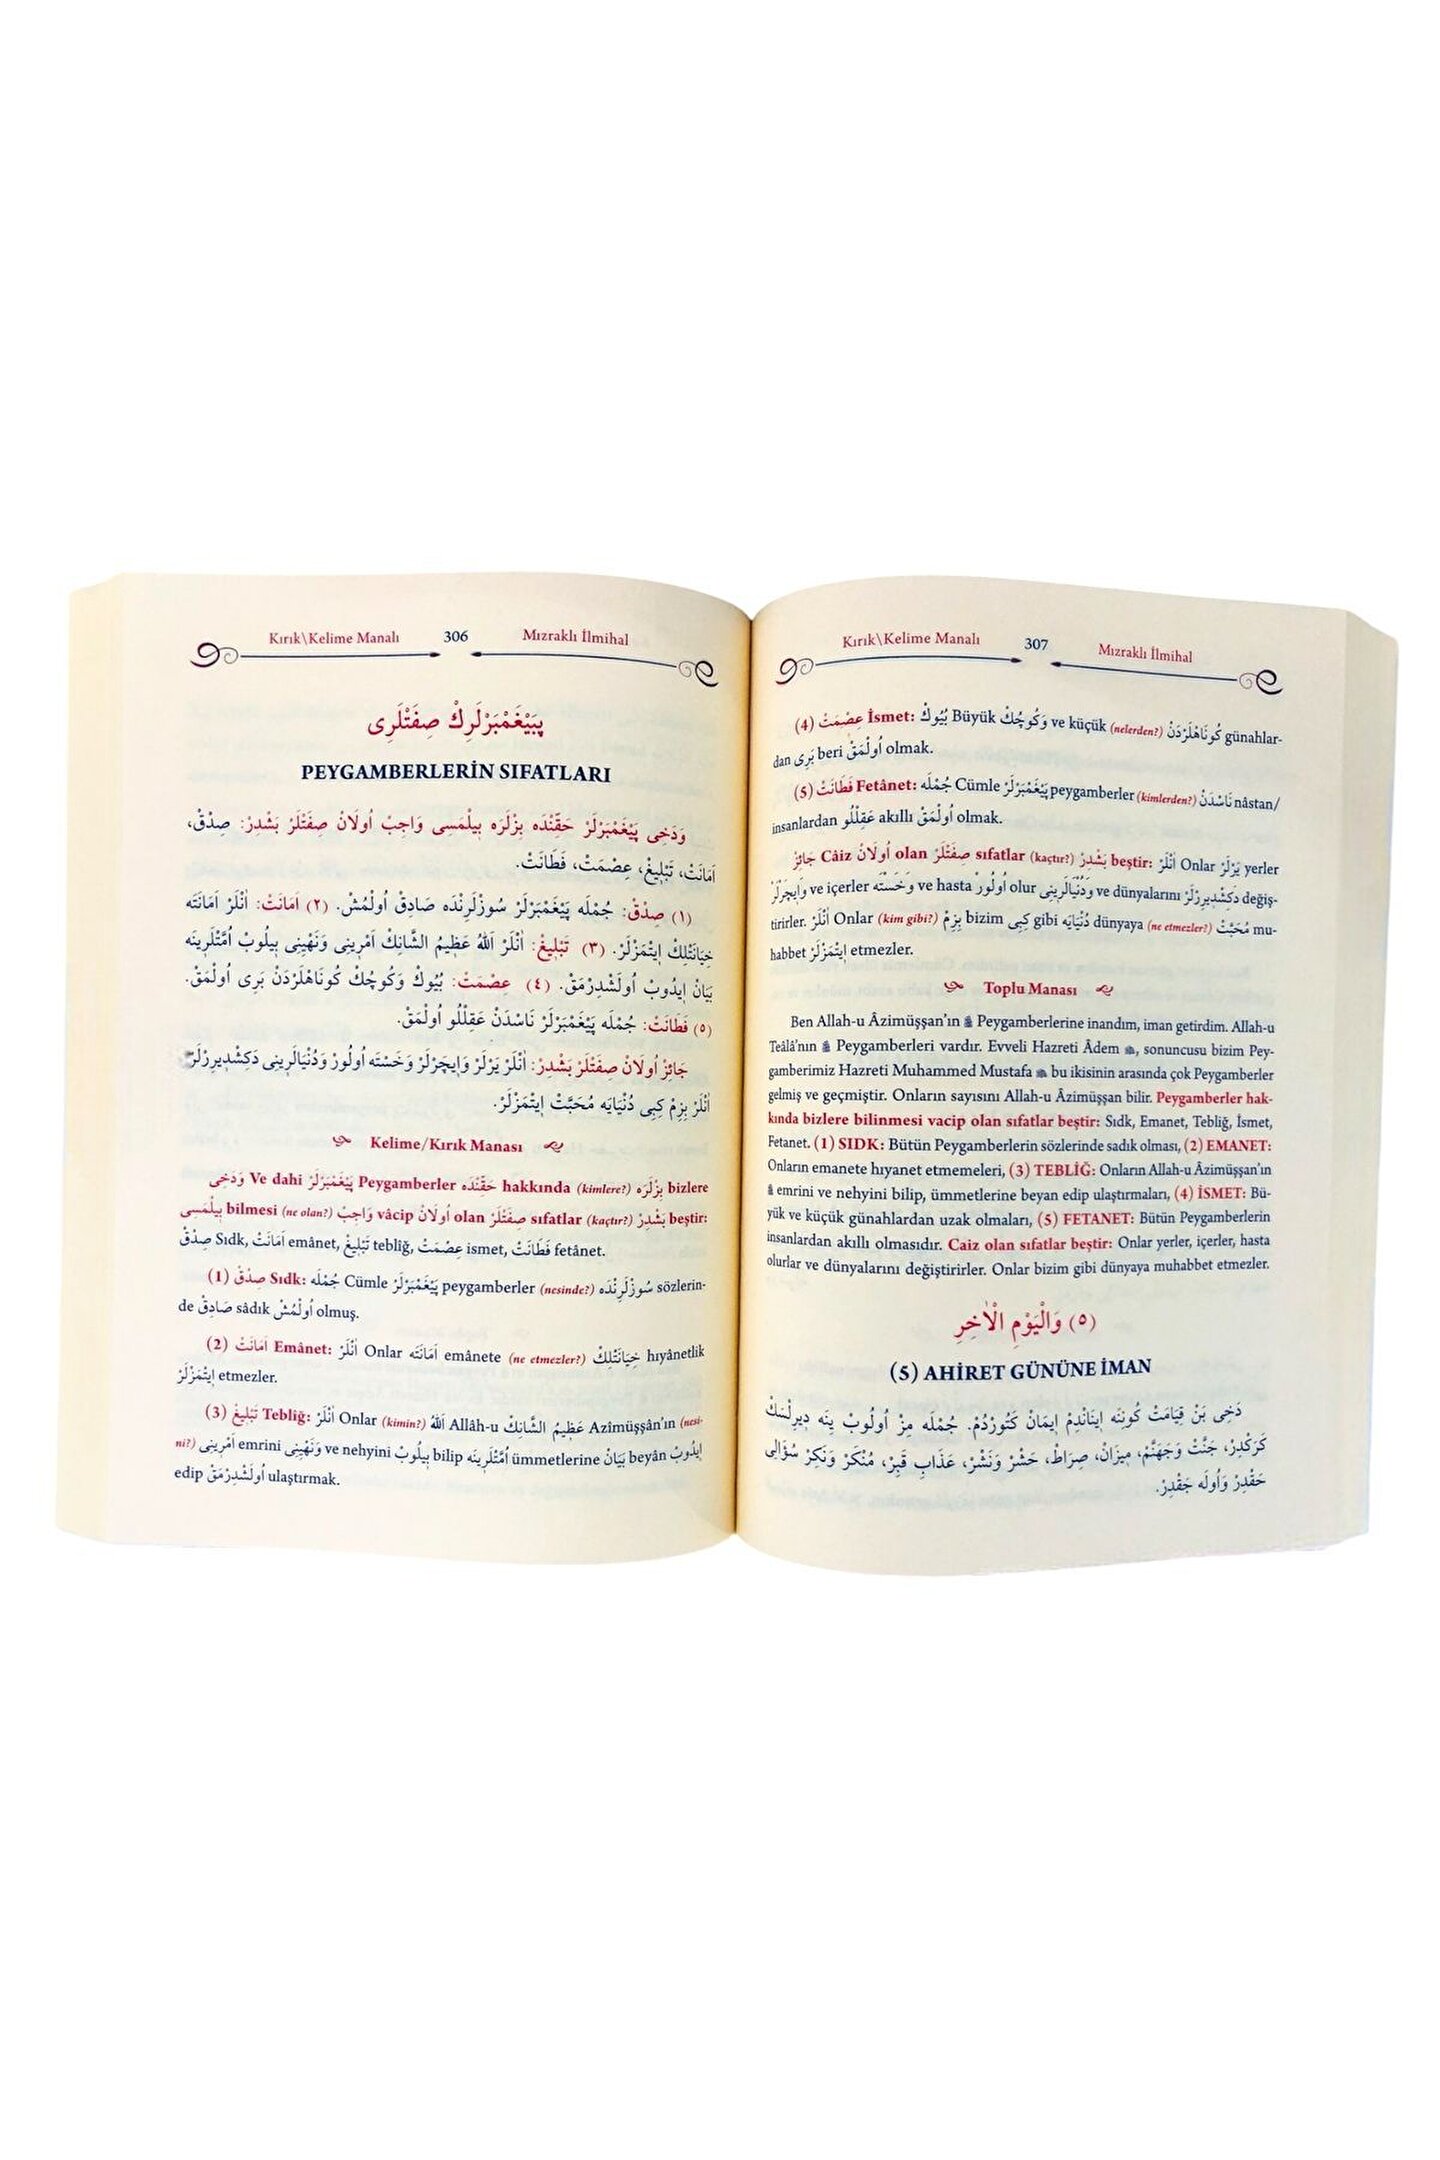 Kırık\Kelime Manalı 306 Mızraklı İlmihal
پَيْغَمْبَرْلَرِكْ صِفَتْلَرِى
PEYGAMBERLERİN SIFATLARI
وَدَخِى پَيْغَمْبَرْلَرْ حَقِّنْدَه بِزْلَرَه بِيلْمَسِى وَاجِبْ اُولَانْ صِفَتْلَرْ بَشْدِرْ: صِدْقْ،
اَمَانَتْ، تَبْلِيغْ، عِصْمَتْ، فَطَانَتْ.
(١) صِدْقْ: جُمْلَه پَيْغَمْبَرْلَرْ سُوزْلَرِنْدَه صَادِقْ اُولْمُشْ. (٢) اَمَانَتْ: اَنْلَرْ اَمَانَتَه
خِيَانَتْلِكْ اِيتْمَزْلَرْ. (٣) تَبْلِيغْ: اَنْلَرْ اَللّٰهُ عَظِيمُ الشَّانِكْ اَمْرِينِى وَنَهْيِنِى بِيلُوبْ اُمَّتْلَرِينَه
بَيَانْ اِيدُوبْ اُولَشْدِرْمَقْ. (٤) عِصْمَتْ: بُيُوكْ وَكُوچُكْ كُونَاهْلَرْدَنْ بَرِى اُولْمَقْ.
(٥) فَطَانَتْ: جُمْلَه پَيْغَمْبَرْلَرْ نَاسْدَنْ عَقِلْلُو اُولْمَقْ.
جَائِزْ اُولَانْ صِفَتْلَرْ بَشْدِرْ: اَنْلَرْ يَرْلَرْ وَاِيچَرْلَرْ وَخَسْتَه اُولُورْ وَدُنْيَالَرِينِى دَكِشْدِيرِرْلَرْ
اَنْلَرْ بِزِمْ كِبِى دُنْيَايَه مُحَبَّتْ اِيتْمَزْلَرْ.
Kelime/Kırık Manası
وَدَخِى Ve dahi پَيْغَمْبَرْلَرْ Peygamberler حَقِّنْدَه hakkında (kimlere?) بِزْلَرَه bizlere
بِيلْمَسِى bilmesi (ne olan?) وَاجِبْ vâcip اُولَانْ olan صِفَتْلَرْ sıfatlar (kaçtır?) بَشْدِرْ beştir:
صِدْقْ Sıdk, اَمَانَتْ emânet, تَبْلِيغْ teblîğ, عِصْمَتْ ismet, فَطَانَتْ fetânet.
(1) صِدْقْ Sıdk: جُمْلَه Cümle پَيْغَمْبَرْلَرْ peygamberler (nesinde?) سُوزْلَرِنْدَه sözlerin-
de صَادِقْ sâdık اُولْمُشْ olmuş.
(2) اَمَانَتْ Emânet: اَنْلَرْ Onlar اَمَانَتَه emânete (ne etmezler?) خِيَانَتْلِكْ hıyânetlik
اِيتْمَزْلَرْ etmezler.
(3) تَبْلِيغْ Teblîğ: اَنْلَرْ Onlar (kimin?) اَللّٰهُ Allâh-u عَظِيمُ الشَّانِكْ Azîmüşşân'ın (nesi-
ni?) اَمْرِينِى emrini وَنَهْيِنِى ve nehyini بِيلُوبْ bilip اُمَّتْلَرِينَه ümmetlerine بَيَانْ beyân اِيدُوبْ
edip اُولَشْدِرْمَقْ ulaştırmak.
Kırık\Kelime Manalı 307 Mızraklı İlmihal
(4) عِصْمَتْ İsmet: بُيُوكْ Büyük وَكُوچُكْ ve küçük (nelerden?) كُونَاهْلَرْدَنْ günahlar-
dan بَرِى beri اُولْمَقْ olmak.
(5) فَطَانَتْ Fetânet: جُمْلَه Cümle پَيْغَمْبَرْلَرْ peygamberler (kimlerden?) نَاسْدَنْ nâstan/
insanlardan عَقِلْلُو akıllı اُولْمَقْ olmak.
جَائِزْ Câiz اُولَانْ olan صِفَتْلَرْ sıfatlar (kaçtır?) بَشْدِرْ beştir: اَنْلَرْ Onlar يَرْلَرْ yerler
وَاِيچَرْلَرْ ve içerler وَخَسْتَه ve hasta اُولُورْ olur وَدُنْيَالَرِينِى ve dünyalarını دَكِشْدِيرِرْلَرْ değiş-
tirirler. اَنْلَرْ Onlar (kim gibi?) بِزِمْ bizim كِبِى gibi دُنْيَايَه dünyaya (ne etmezler?) مُحَبَّتْ mu-
habbet اِيتْمَزْلَرْ etmezler.
Toplu Manası
Ben Allah-u Âzimüşşan'ın Peygamberlerine inandım, iman getirdim. Allah-u
Teâlâ'nın Peygamberleri vardır. Evveli Hazreti Âdem, sonuncusu bizim Pey-
gamberimiz Hazreti Muhammed Mustafa bu ikisinin arasında çok Peygamberler
gelmiş ve geçmiştir. Onların sayısını Allah-u Âzimüşşan bilir. Peygamberler hak-
kında bizlere bilinmesi vacip olan sıfatlar beştir: Sıdk, Emanet, Tebliğ, İsmet,
Fetanet. (1) SIDK: Bütün Peygamberlerin sözlerinde sadık olması, (2) EMANET:
Onların emanete hıyanet etmemeleri, (3) TEBLİĞ: Onların Allah-u Âzimüşşan'ın
emrini ve nehyini bilip, ümmetlerine beyan edip ulaştırmaları, (4) İSMET: Bü-
yük ve küçük günahlardan uzak olmaları, (5) FETANET: Bütün Peygamberlerin
insanlardan akıllı olmasıdır. Caiz olan sıfatlar beştir: Onlar yerler, içerler, hasta
olurlar ve dünyalarını değiştirirler. Onlar bizim gibi dünyaya muhabbet etmezler.
(٥) وَالْيَوْمِ الْاٰخِرِ
(5) AHİRET GÜNÜNE İMAN
دَخِى بَنْ قِيَامَتْ كُونِنَه اِينَانْدِمْ اِيمَانْ كَتُورْدُمْ. جُمْلَه مِزْ اُولُوبْ يِنَه دِيرِلْسَكْ
كَرَكْدِرْ، جَنَّتْ وَجَهَنَّمْ، مِيزَانْ، صِرَاطْ، حَشْرْ وَنَشْرْ، عَذَابِ قَبِرْ، مُنْكَرْ وَنَكِرْ سُؤَالِى
حَقْدِرْ وَاُولَه جَقْدِرْ.